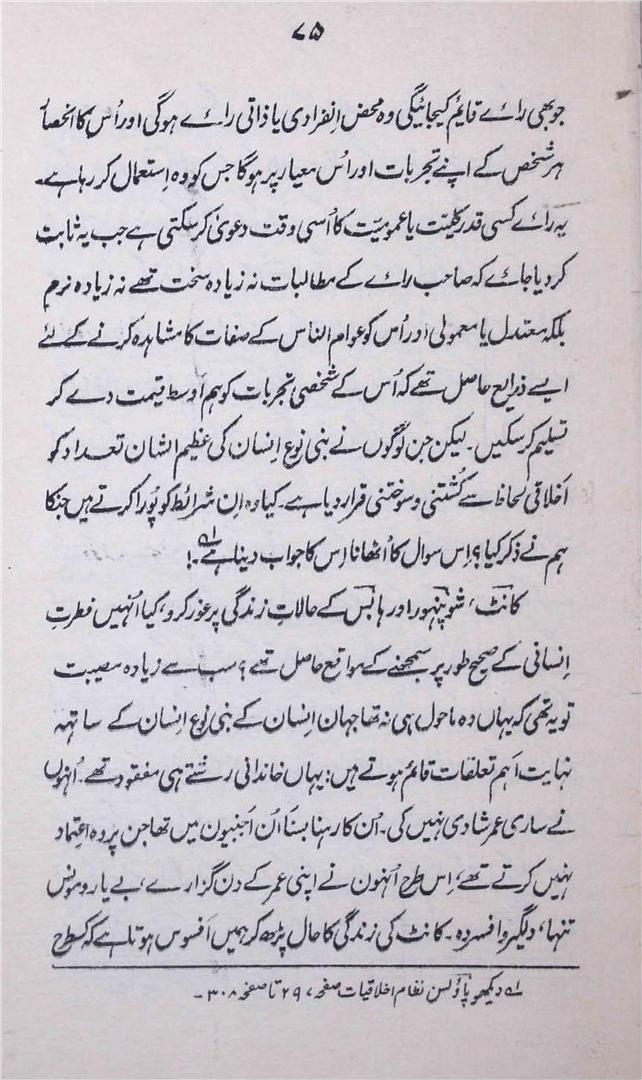 ۷۵
جو بھی رائے قایم کیجائیگی وہ محض اِنفرادی یا ذاتی رائے ہوگی اور اُس کا انحصار
ہر شخص کے اپنے تجربات اور اُس معیار پر ہوگا جس کو وہ اِستعمال کر رہا ہے۔
یہ رائے کسی قدر کلیّت یا عمومیّت کا اُسی وقت دعویٰ کرسکتی ہے جب یہ ثابت
کر دیا جائے کہ صاحب رائے کے مطالبات نہ زیادہ سخت تھے نہ زیادہ نرم
بلکہ معتدل یا معمولی اور اُس کو عوام الناس کے صفات کا مشاہدہ کرنے کے لئے
ایسے ذرایع حاصل تھے کہ اُس کے شخصی تجربات کو ہم اَوسط قیمت دے کر
تسلیم کرسکیں۔ لیکن جن لوگوں نے بنی نوع اِنسان کی عظیم الشان تعداد کو
اَخلاقی لحاظ سے کُشتنی و سوختنی قرار دیا ہے۔ کیا وہ اِن شرائط کو پُورا کرتے ہیں جنکا
ہم نے ذکر کیا؟ اِس سوال کا اُٹھانا اِس کا جواب دینا ہے۔ ؎۱!
کانٹ، شوپنہور اور ہابس کے حالاتِ زندگی پر غور کرو، کیا اُنہیں فطرتِ
اِنسانی کے صحیح طور پر سمجھنے کے مواقع حاصل تھے؟ سب سے زیادہ مصیبت
تو یہ تھی کہ یہاں وہ ماحول ہی نہ تھا جہان اِنسان کے بنی نوع اِنسان کے ساتھہ
نہایت اَہم تعلقات قائم ہوتے ہیں: یہاں خاندانی رشتے ہی مفقود تھے۔ اُنہوں
نے ساری عمر شادی نہیں کی۔ اُن کا رہنا بسنا اُن اَجنبیون میں تھا جن پر وہ اعتماد
نہیں کرتے تھے، اِس طرح اُنہون نے اپنی عمر کے دن گزارے، بے یار و مونس
تنہا، دلگیر و افسردہ۔ کانٹ کی زندگی کا حال پڑھ کر ہمیں اَفسوس ہوتا ہے کہ کسطرح
؎۱ دیکھو پاؤلسن نظام اخلاقیات صفحہ ۲۹۷ تا صفحہ ۳۰۸۔